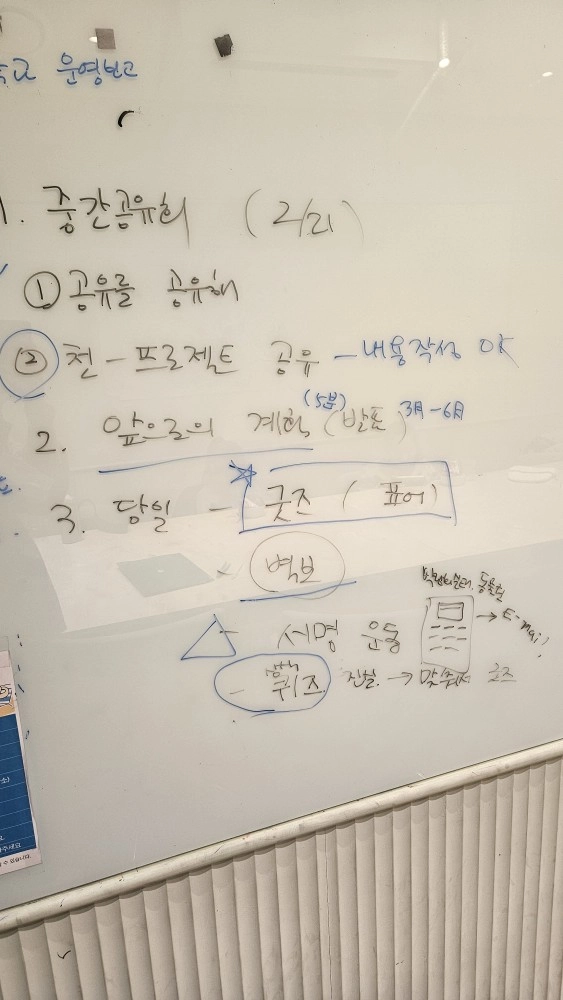 운영보고
1. 중간공유회 (2/21)
① 공유를 공유해
② 천 - 프로젝트 공유 - 내용작성
(5분)
2. 앞으로의 계획 (발표) 3月-6月
3. 당일 - 굿즈 ( 표어)
벽보
서명 운동
→ E-mail
- 퀴즈 → 맞춰서 굿즈